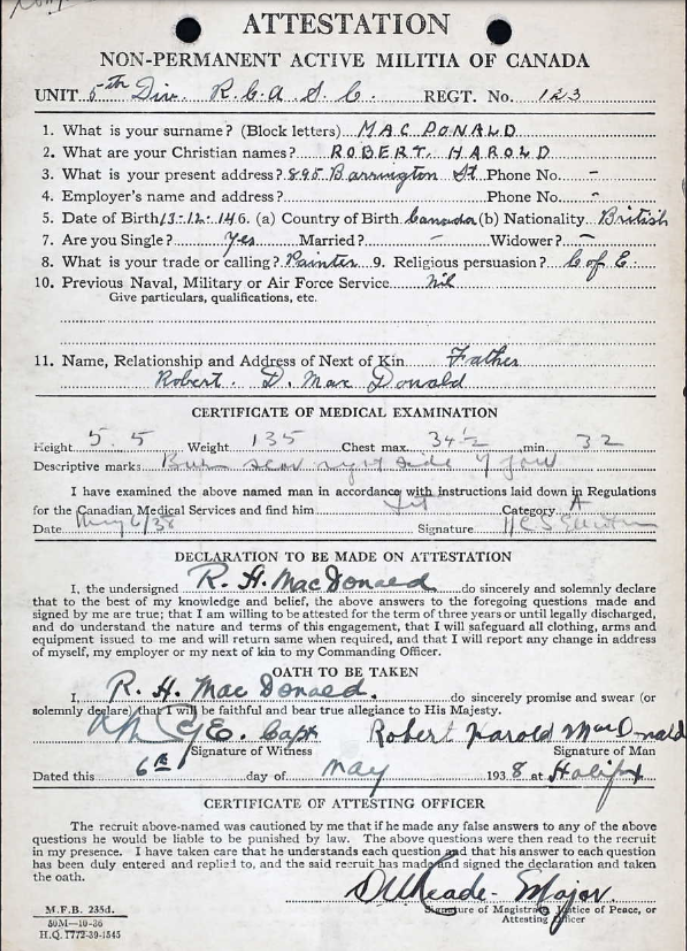 ATTESTATION
NON-PERMANENT ACTIVE MILITIA OF CANADA
UNIT 5th Div. R.C.A.S.C. REGT. No. 123
1. What is your surname? (Block letters) MACDONALD
2. What are your Christian names? ROBERT. HAROLD
3. What is your present address? 895 Barrington St. Phone No. -
4. Employer's name and address? Phone No. -
5. Date of Birth 13-12-1 (a) Country of Birth Canada (b) Nationality British
7. Are you Single? Yes Married? - Widower? -
8. What is your trade or calling? Painter 9. Religious persuasion? C of E.
10. Previous Naval, Military or Air Force Service nil
Give particulars, qualifications, etc.
11. Name, Relationship and Address of Next of Kin Father
Robert. D. MacDonald
CERTIFICATE OF MEDICAL EXAMINATION
Height 5.5 Weight 135 Chest max. 34½ min. 32
Descriptive marks Burn scar right side of jaw
I have examined the above named man in accordance with instructions laid down in Regulations
for the Canadian Medical Services and find him fit Category A
Date May 6/38 Signature
DECLARATION TO BE MADE ON ATTESTATION
I, the undersigned R. H. MacDonald do sincerely and solemnly declare
that to the best of my knowledge and belief, the above answers to the foregoing questions made and
signed by me are true; that I am willing to be attested for the term of three years or until legally discharged,
and do understand the nature and terms of this engagement, that I will safeguard all clothing, arms and
equipment issued to me and will return same when required, and that I will report any change in address
of myself, my employer or my next of kin to my Commanding Officer.
OATH TO BE TAKEN
I, R. H. MacDonald. do sincerely promise and swear (or
solemnly declare) that I will be faithful and bear true allegiance to His Majesty.
Capt Robert Harold MacDonald
Signature of Witness Signature of Man
Dated this 6th day of May 1938 at Halifax
CERTIFICATE OF ATTESTING OFFICER
The recruit above-named was cautioned by me that if he made any false answers to any of the above
questions he would be liable to be punished by law. The above questions were then read to the recruit
in my presence. I have taken care that he understands each question and that his answer to each question
has been duly entered and replied to, and the said recruit has made and signed the declaration and taken
the oath.
Major.
Signature of Magistrate, Justice of Peace, or
Attesting Officer
M.F.B. 235d.
50M—10-36
H.Q. 1772-39-1545